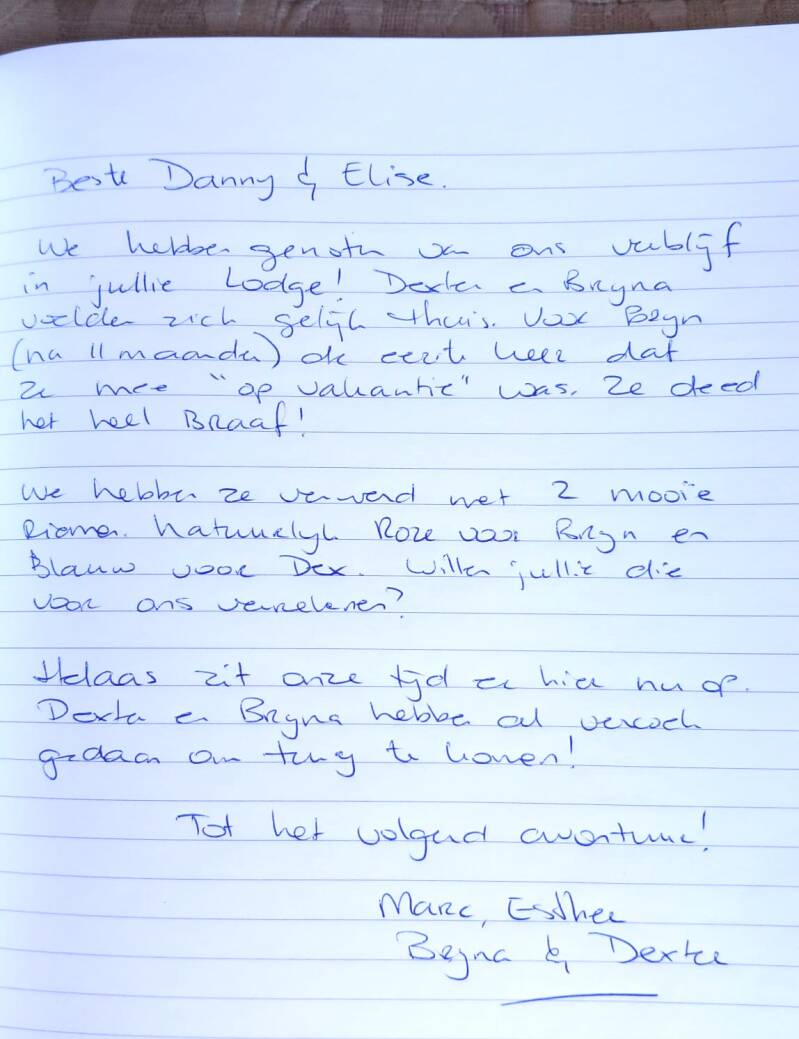 Beste Danny & Elise.
We hebben genoten van ons verblijf
in jullie Lodge! Dexter en Bryna
voelden zich gelijk thuis. Voor Bryn
(na 11 maanden) de eerste keer dat
ze mee "op vakantie" was. Ze deed
het heel Braaf!
We hebben ze verwend met 2 mooie
Riemen. Natuurlijk Roze voor Bryn en
Blauw voor Dex. Willen jullie die
voor ons verrekenen?
Helaas zit onze tijd er hier nu op.
Dexter en Bryna hebben al verzoek
gedaan om terug te komen!
Tot het volgend avontuur!
Marc, Esther
Bryna & Dexter